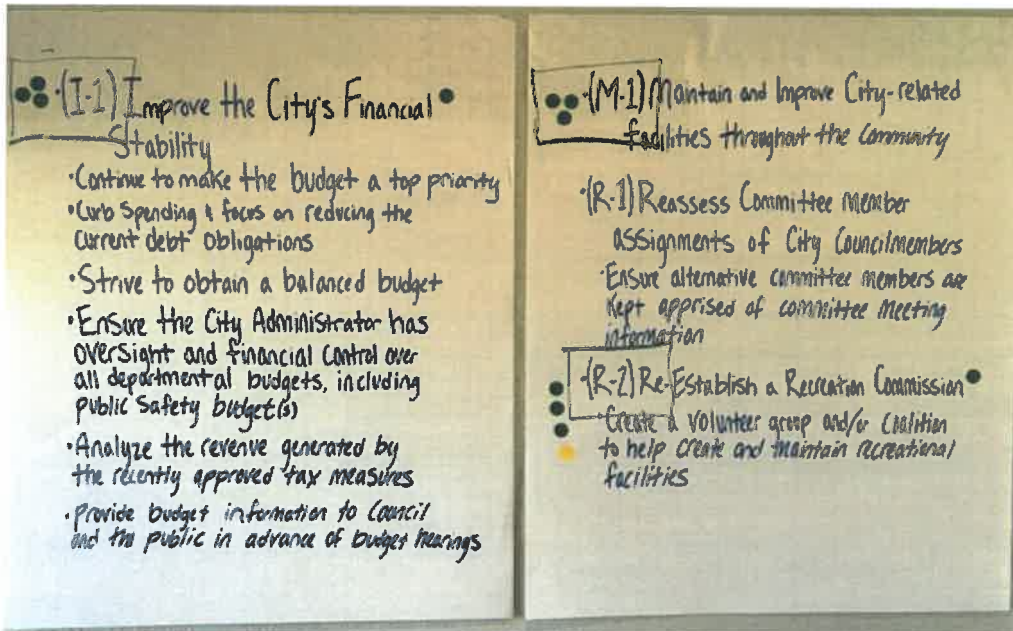 •(I-1) Improve the City's Financial
Stability
•Continue to make the budget a top priority
•Curb Spending & focus on reducing the
current debt obligations
•Strive to obtain a balanced budget
•Ensure the City Administrator has
oversight and financial control over
all departmental budgets, including
public safety budget(s)
•Analyze the revenue generated by
the recently approved tax measures
•provide budget information to Council
and the public in advance of budget hearings
•(M-1) Maintain and Improve City-related
facilities throughout the Community
•(R-1) Reassess Committee member
assignments of City Councilmembers
•Ensure alternative committee members are
kept apprised of committee meeting
information
•(R-2) Re-Establish a Recreation Commission
•Create a volunteer group and/or Coalition
to help create and maintain recreational
facilities